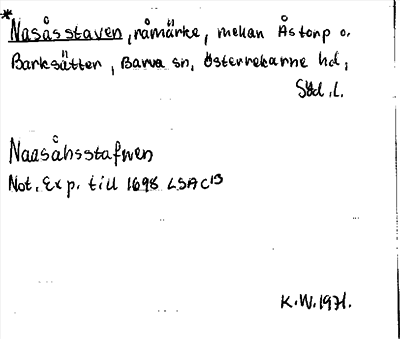 *Nasåsstaven, råmärke, mellan Åstorp o.
Barksätter, Barva sn, Österrekarne hd,
Södl.
Naasåhsstafwen
Not. Exp. till 1698 LSA C13
K.W. 1971.